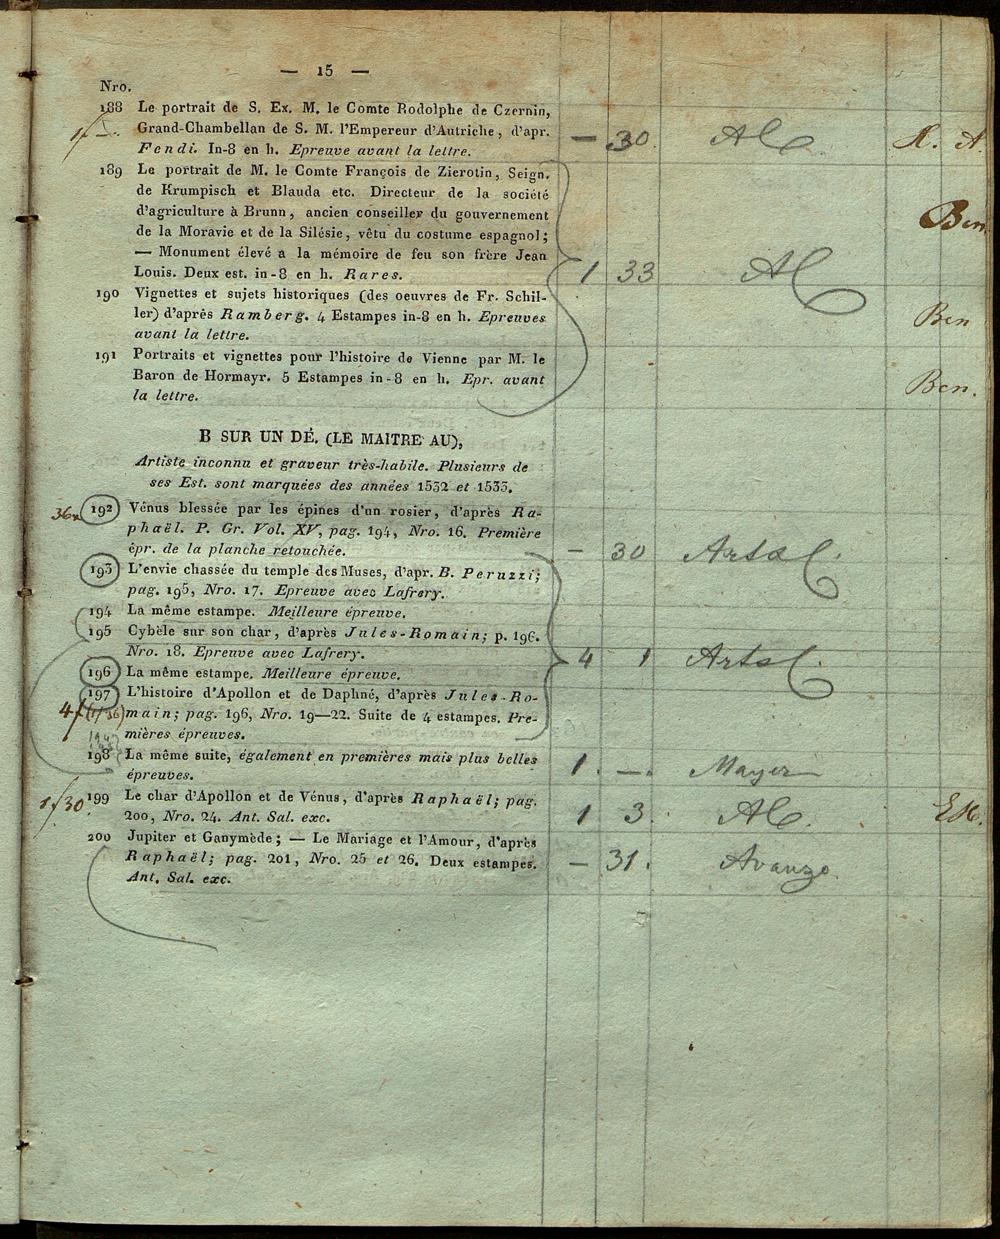 — 15 —
Nro.
188 Le portrait de S. Ex. M. le Comte Rodolphe de Czernin, Grand-Chambellan de S. M. l'Empereur d'Autriche, d'apr.
Fendi. In-8 en h. Epreuve avant la lettre. — 30 R. A.
189 Le portrait de M. le Comte François de Zierotin, Seign.
de Krumpisch et Blauda etc. Directeur de la société
d'agriculture à Brunn, ancien conseiller du gouvernement Ben
de la Moravie et de la Silésie, vêtu du costume espagnol;
— Monument élevé a la mémoire de feu son frère Jean
Louis. Deux est. in-8 en h. Rares. 1 33
190 Vignettes et sujets historiques (des oeuvres de Fr. Schil-
ler) d'aprés Ramberg. 4 Estampes in-8 en h. Epreuves Ben
avant la lettre.
191 Portraits et vignettes pour l'histoire de Vienne par M. le
Baron de Hormayr. 5 Estampes in-8 en h. Epr. avant Ben.
la lettre.
B SUR UN DÉ. (LE MAITRE AU),
Artiste inconnu et graveur très-habile. Plusieurs de
ses Est. sont marquées des années 1532 et 1533.
192 Vénus blessée par les épines d'un rosier, d'après Ra-
phaël. P. Gr. Vol. XV, pag. 194, Nro. 16. Première
épr. de la planche retouchée. — 30 Arta
193 L'envie chassée du temple des Muses, d'apr. B. Peruzzi;
pag. 195, Nro. 17. Epreuve avec Lafrery.
194 La même estampe. Meilleure épreuve.
195 Cybèle sur son char, d'après Jules-Romain; p. 196.
Nro. 18. Epreuve avec Lafrery. 4 1 Arta
196 La même estampe. Meilleure épreuve.
197 L'histoire d'Apollon et de Daphné, d'après Jules-Ro-
main; pag. 196, Nro. 19—22. Suite de 4 estampes. Pre-
mières épreuves.
198 La même suite, également en premières mais plus belles
épreuves. 1. —. Mayer
1/30 199 Le char d'Apollon et de Vénus, d'après Raphaël; pag.
200, Nro. 24. Ant. Sal. exc. 1 3.
200 Jupiter et Ganymède; — Le Mariage et l'Amour, d'après
Raphaël; pag. 201, Nro. 25 et 26. Deux estampes. — 31. Avanzo.
Ant. Sal. exc.